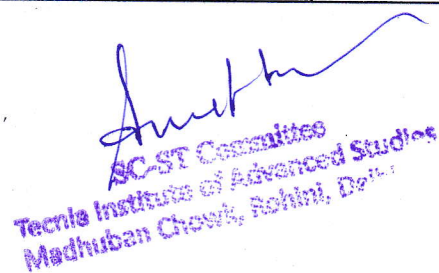 SC-ST Committee
Tecnia Institute of Advanced Studies
Madhuban Chowk, Rohini, Delhi